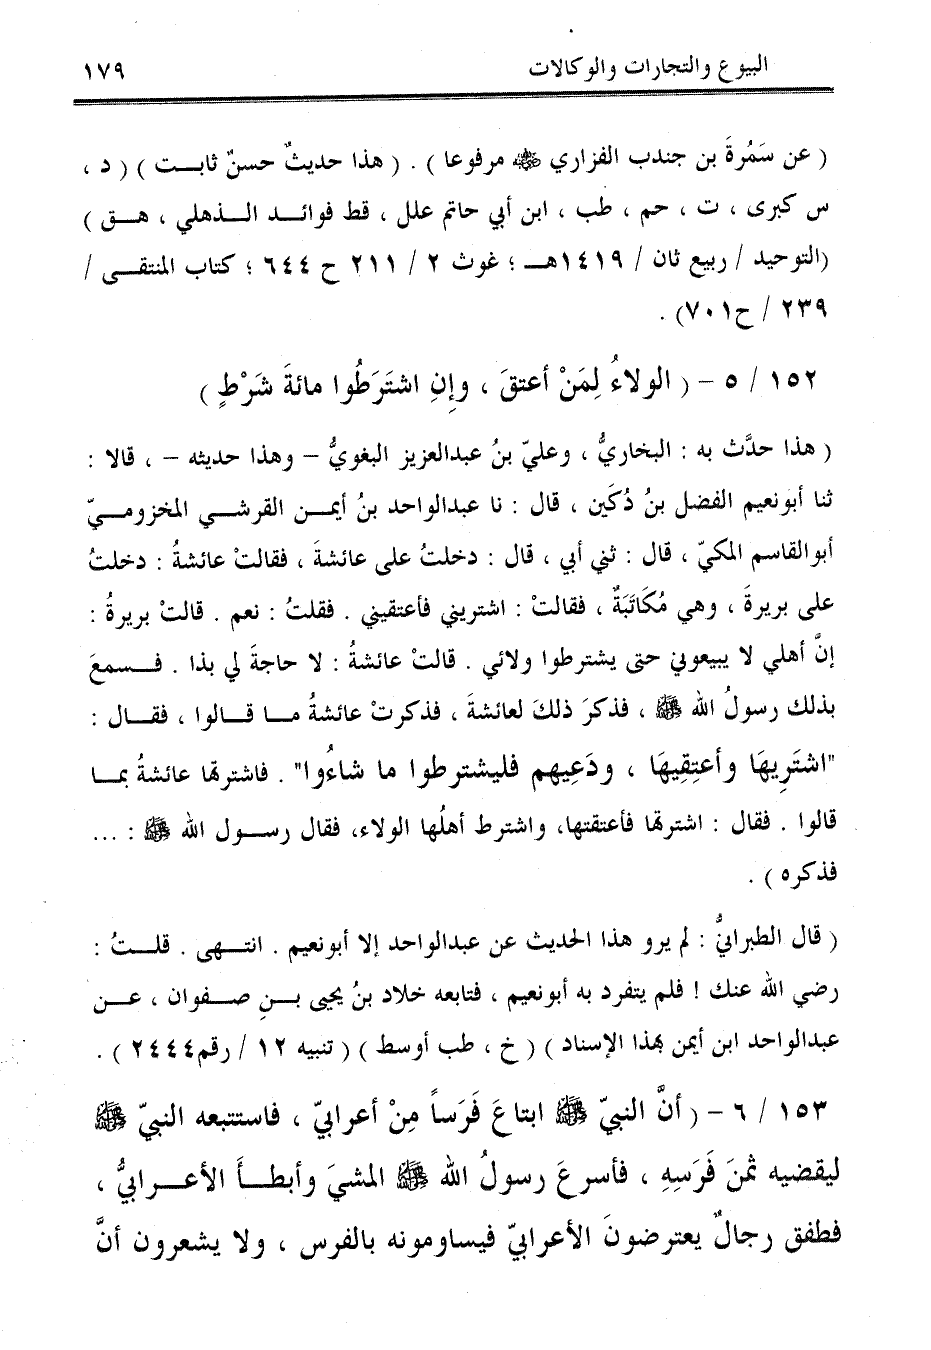 البيوع والتجارات والوكالات ١٧٩
( عن سَمُرةَ بن جندب الفزاري ﷺ مرفوعا ) . ( هذا حديثٌ حسنٌ ثابت ) ( د ،
س كبرى ، ت ، حم ، طب ، ابن أبي حاتم علل ، قط فوائد الذهلي ، هق )
(التوحيد / ربيع ثان / ١٤١٩هـ ؛ غوث ٢ / ٢١١ ح ٦٤٤ ؛ كتاب المنتقى /
٢٣٩ / ح٧٠١) .
١٥٢ / ٥ – ( الولاءُ لِمَنْ أعتقَ ، وإِنِ اشتَرَطُوا مائةَ شَرْطٍ )
( هذا حدَّث به : البخاريُّ ، وعليّ بنُ عبدالعزيز البغويُّ – وهذا حديثه – ، قالا :
ثنا أبونعيم الفضل بنُ دُكَين ، قال : نا عبدالواحد بنُ أيمن القرشي المخزوميّ
أبوالقاسم المكيّ ، قال : ثني أبي ، قال : دخلتُ على عائشةَ ، فقالتْ عائشةُ : دخلتُ
على بريرةَ ، وهي مُكَاتَبَةٌ ، فقالتْ : اشتريني فأعتقيني . فقلتُ : نعم . قالتْ بريرةُ :
إنَّ أهلي لا يبيعوني حتى يشترطوا ولائي . قالتْ عائشةُ : لا حاجةَ لي بذا . فسمعَ
بذلك رسولُ الله ﷺ ، فذكرَ ذلكَ لعائشةَ ، فذكرتْ عائشةُ ما قالوا ، فقال :
"اشتَرِيهَا وأعتِقِيهَا ، ودَعِيهم فليشترطوا ما شاءُوا" . فاشترتها عائشةُ بما
قالوا . فقال : اشترتها فأعتقتها، واشترط أهلُها الولاء، فقال رسول الله ﷺ : ...
فذكره ) .
( قال الطبرانيُّ : لم يرو هذا الحديث عن عبدالواحد إلا أبونعيم . انتهى . قلتُ :
رضي الله عنك ! فلم يتفرد به أبونعيم ، فتابعه خلاد بنُ يحيى بنِ صفوان ، عن
عبدالواحد ابن أيمن بهذا الإسناد ) ( خ ، طب أوسط ) ( تنبيه ١٢ / رقم٢٤٤٤ ) .
١٥٣ / ٦ – ( أنَّ النبيّ ﷺ ابتاعَ فَرَساً مِنْ أعرابيّ ، فاستتبعه النبيّ ﷺ
ليقضيه ثمنَ فَرَسِهِ ، فأسرعَ رسولُ الله ﷺ المشيَ وأبطأَ الأعرابيُّ ،
فطفق رجالٌ يعترضونَ الأعرابيّ فيساومونه بالفرس ، ولا يشعرون أنَّ